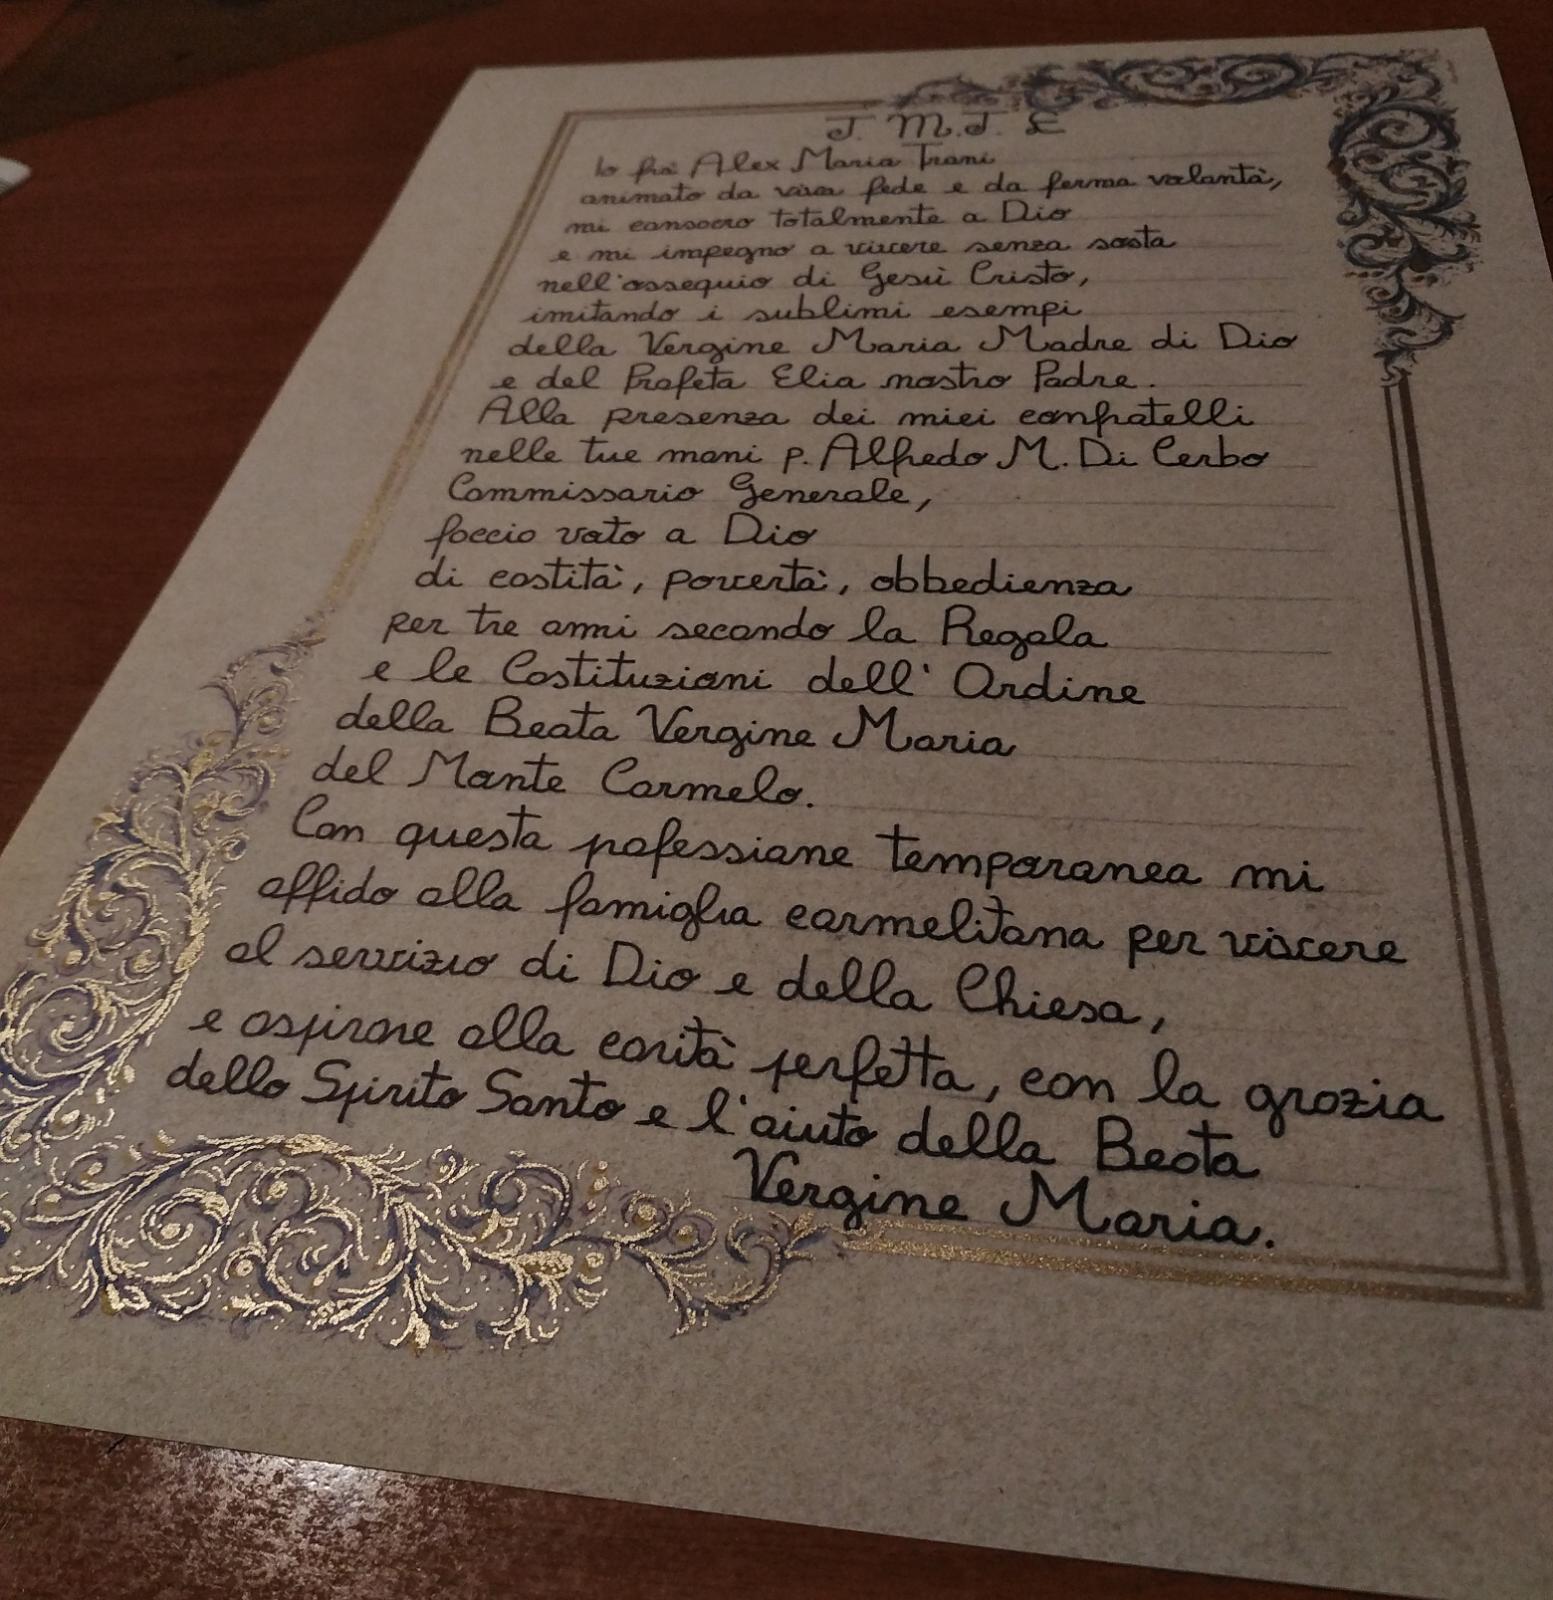 J. M. J. E
Io fra Alex Maria Trani
animato da viva fede e da ferma volontà,
mi consacro totalmente a Dio
e mi impegno a vivere senza sosta
nell'ossequio di Gesù Cristo,
imitando i sublimi esempi
della Vergine Maria Madre di Dio
e del Profeta Elia nostro Padre.
Alla presenza dei miei confratelli
nelle tue mani p. Alfredo M. Di Cerbo
Commissario Generale,
faccio voto a Dio
di castità, povertà, obbedienza
per tre anni secondo la Regola
e le Costituzioni dell' Ordine
della Beata Vergine Maria
del Monte Carmelo.
Con questa pofessione temporanea mi
affido alla famiglia carmelitana per vivere
al servizio di Dio e della Chiesa,
e aspirare alla carità perfetta, con la grazia
dello Spirito Santo e l'aiuto della Beata
Vergine Maria.